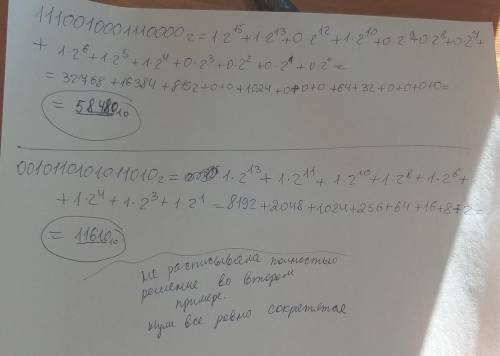 1110010001110000₂ = 1·2¹⁵ + 1·2¹³ + 0·2¹² + 1·2¹⁰ + 0·2⁹ + 0·2⁸ + 0·2⁷ +
+ 1·2⁶ + 1·2⁵ + 1·2⁴ + 0·2³ + 0·2² + 0·2¹ + 0·2⁰ =
= 32768 + 16384 + 8192 + 0 + 0 + 1024 + 0 + 0 + 0 + 64 + 32 + 0 + 0 + 0 + 0 =
= 58480₁₀
0010110101011010₂ = 1·2¹³ + 1·2¹¹ + 1·2¹⁰ + 1·2⁸ + 1·2⁶ +
+ 1·2⁴ + 1·2³ + 1·2¹ = 8192 + 2048 + 1024 + 256 + 64 + 16 + 8 + 2 =
= 11610₁₀
не расписывала полностью
решение во втором
примере.
нули все равно сократятся